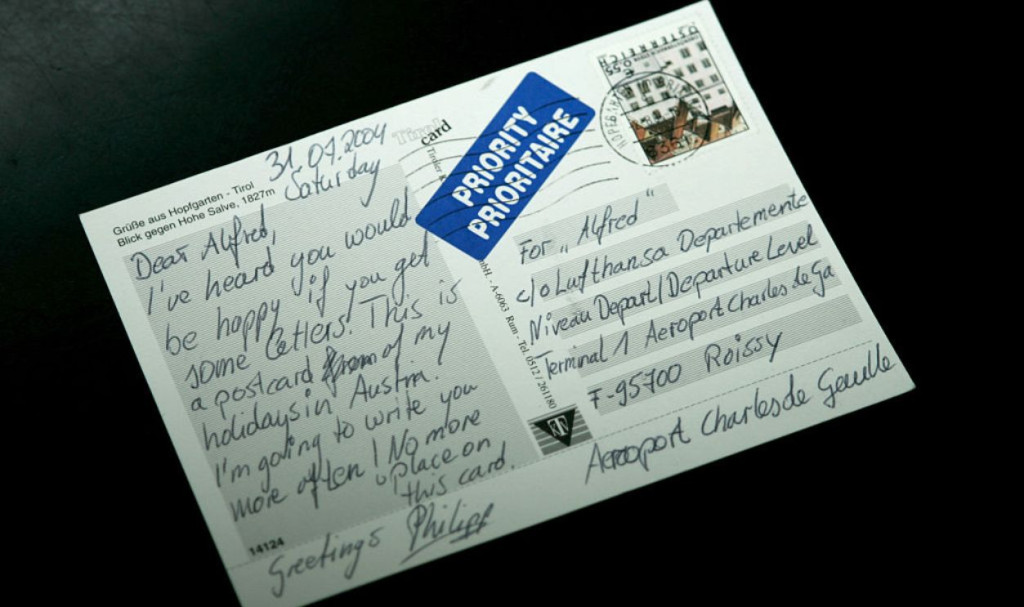 Grüße aus Hopfgarten - Tirol
Blick gegen Hohe Salve, 1827m
31.07.2004
Saturday
Dear Alfred,
I've heard you would
be happy if you get
some letters. This is
a postcard from of my
holidays in Austria.
I'm going to write you
more often! No more
place on
this card.
Greetings Philipp
14124
Tirol
card
PRIORITY
PRIORITAIRE
ÖSTERREICH
€ 0,55
For „Alfred"
c/o Lufthansa Departemente
Niveau Depart/Departure Level
Terminal 1 Aeroport Charles de Ga
F-95700 Roissy
Aeroport Charles de Geulle
A-6063 Rum - Tel. 0512 / 261180